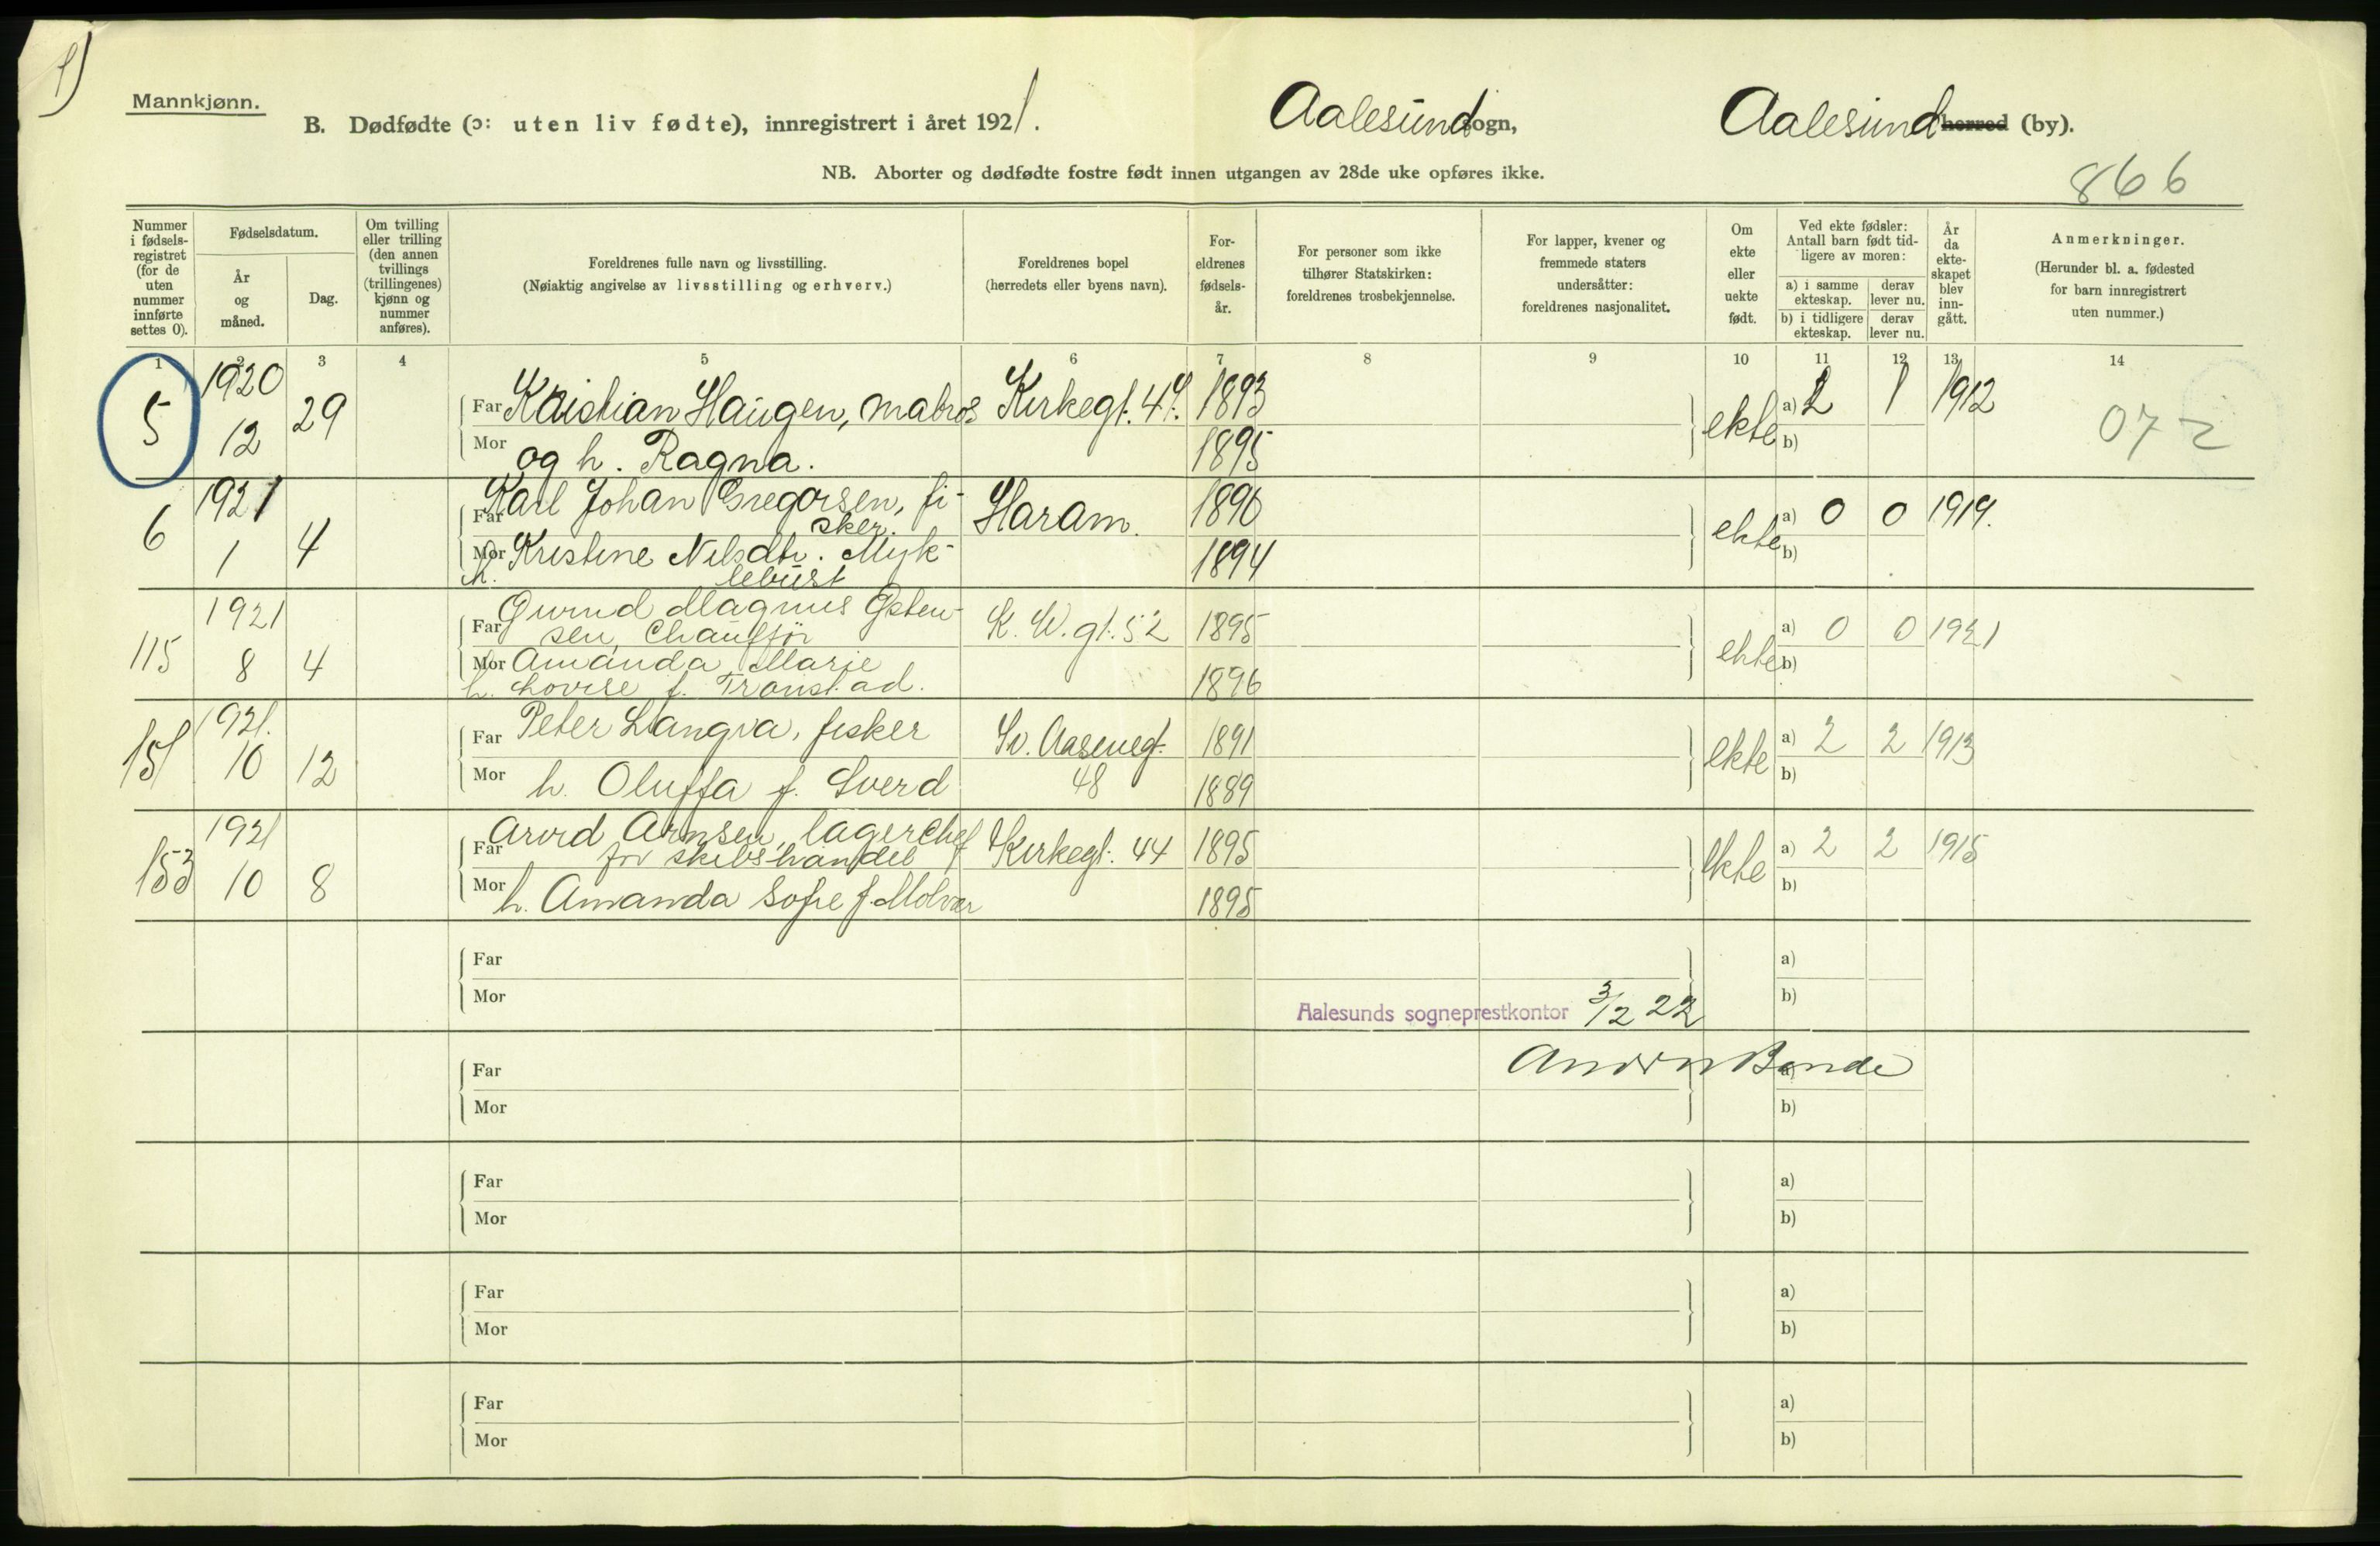 1)
Mannkjønn.
B. Dødfødte (ɔ: uten liv fødte), innregistrert i året 1921. Aalesund sogn, Aalesund herred (by).
NB. Aborter og dødfødte fostre født innen utgangen av 28de uke opføres ikke.
866
Nummer i fødsels-registret (for de uten nummer innførte settes 0).
Fødselsdatum.
År og måned.
Dag.
Om tvilling eller trilling (den annen tvillings (trillingenes) kjønn og nummer anføres).
Foreldrenes fulle navn og livsstilling.
(Nøiaktig angivelse av livsstilling og erhverv.)
Foreldrenes bopel
(herredets eller byens navn).
For-eldrenes fødsels-år.
For personer som ikke tilhører Statskirken: foreldrenes trosbekjennelse.
For lapper, kvener og fremmede staters undersåtter: foreldrenes nasjonalitet.
Om ekte eller uekte født.
Ved ekte fødsler: Antall barn født tid-ligere av moren:
a) i samme ekteskap. derav lever nu.
b) i tidligere ekteskap. derav lever nu.
År da ekte-skapet blev inn-gått.
Anmerkninger.
(Herunder bl. a. fødested for barn innregistrert uten nummer.)
1 2 3 4 5 6 7 8 9 10 11 12 13 14
5 1920 12 29 Far Kristian Haugen, matros Kirkegt. 44. 1893 ekte a) 2 1 1912 07
Mor og h. Ragna. 1895 b)
6 1921 1 4 Far Karl Johan Gregorsen, fi-
sker. Haram. 1896 ekte a) 0 0 1919.
Mor h. Kristine Nilsdtr. Myk-
lebust 1894 b)
115 1921 8 4 Far Magnus Østen-
sen, Chauffør K. W. gt. 52 1895 ekte a) 0 0 1921
Mor Amanda Marie
h. Lovise f. Tronstad. 1896 b)
151 1921. 10 12 Far Peter Langva, fisker Iv. Aasensgt. 48 1891 ekte a) 2 2 1913
Mor h. Oluffa f. Sverd 1889 b)
153 1921 10 8 Far Arvid Arnsen, lagerchef
for skibshandel Kirkegt. 44 1895 ekte a) 2 2 1915
Mor h. Amanda Sofie f. Molvær 1895 b)
Far a)
Mor b)
Aalesunds sogneprestkontor 3/2 22
Far a)
Mor b)
Far a)
Mor b)
Far a)
Mor b)
Far a)
Mor b)